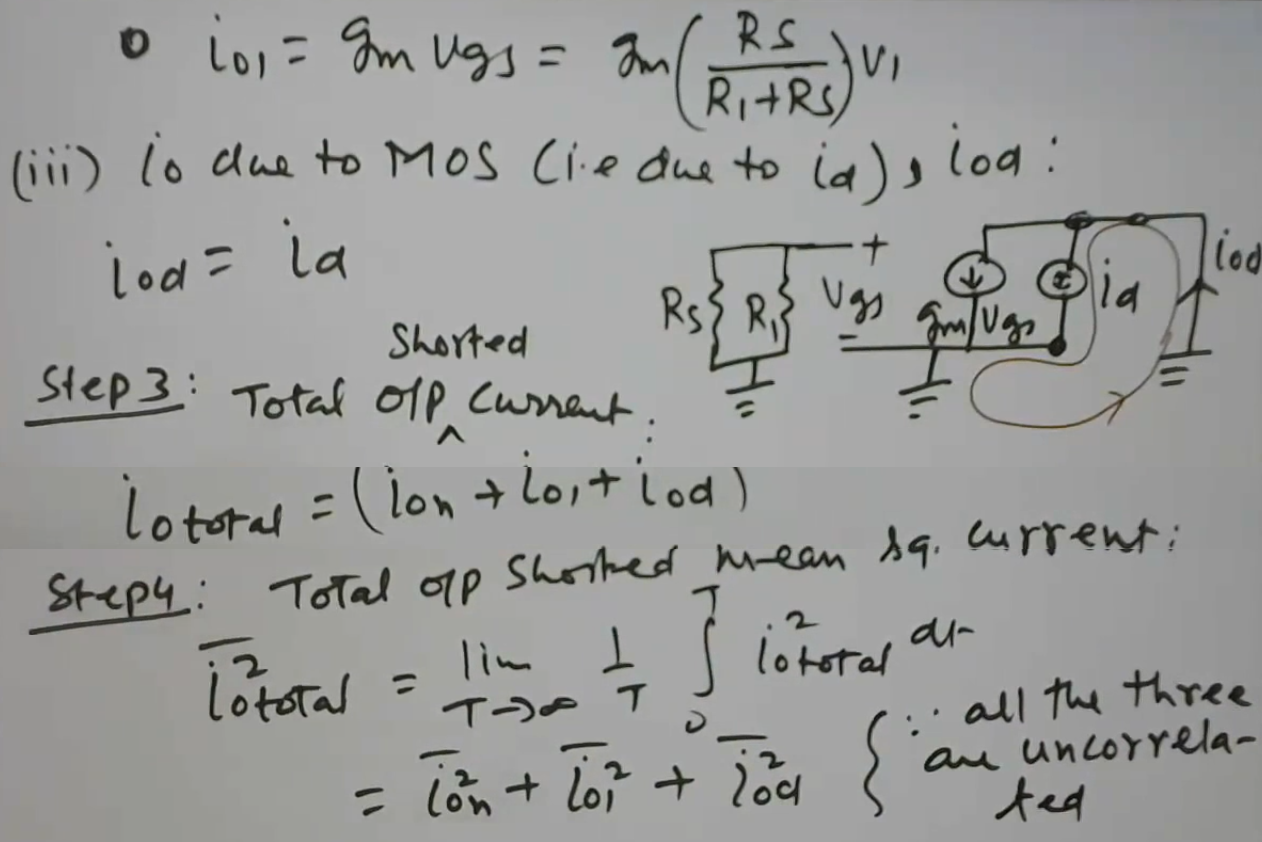 i_o1 = gm vgs = gm (RS / (R1+RS)) v1
(iii) io due to MOS (i.e due to id), iod :
iod = id
Rs R1 + Vgs - gm Vgs id iod
Shorted
Step 3: Total o/p ^ Current :
iototal = (ion + io1 + iod)
Step 4: Total o/p Shorted mean sq. current :
i̅²ototal = lim T→∞ 1/T ∫0^T i²ototal dt
= i̅²on + i̅²o1 + i̅²od { ∵ all the three
are uncorrela-
ted